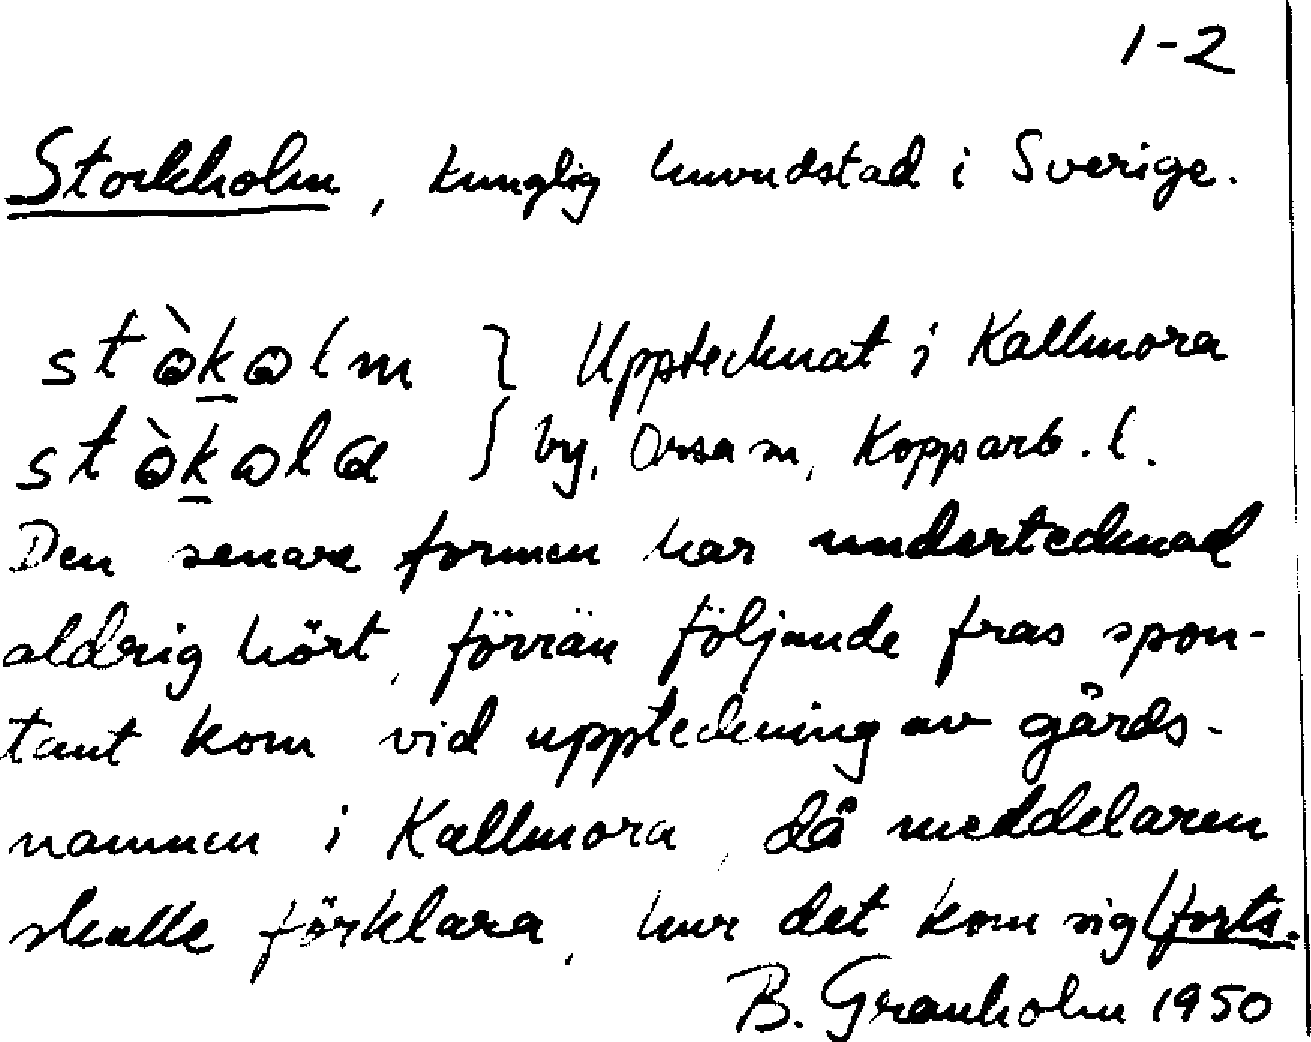 1-2
Stockholm, kunglig huvudstad i Sverige.
stòkolm } Upptecknat i Kallmora
stòkola } by, Orsa sn, Kopparb. l.
Den senare formen har undertecknad
aldrig hört, förrän följande fras spon-
tant kom vid uppteckning av gårds-
namnen i Kallmora, då meddelaren
skulle förklara, hur det kom sig (forts.
B. Granholm 1950